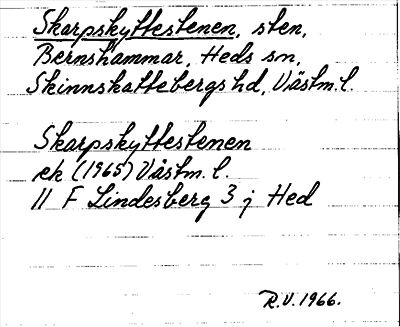 Skarpskyttestenen, sten,
Bernshammar, Heds sn,
Skinnskattebergs hd, Västm.l.
Skarpskyttestenen
ek (1965) Västm. l.
11 F Lindesberg 3 j Hed
R.V. 1966.